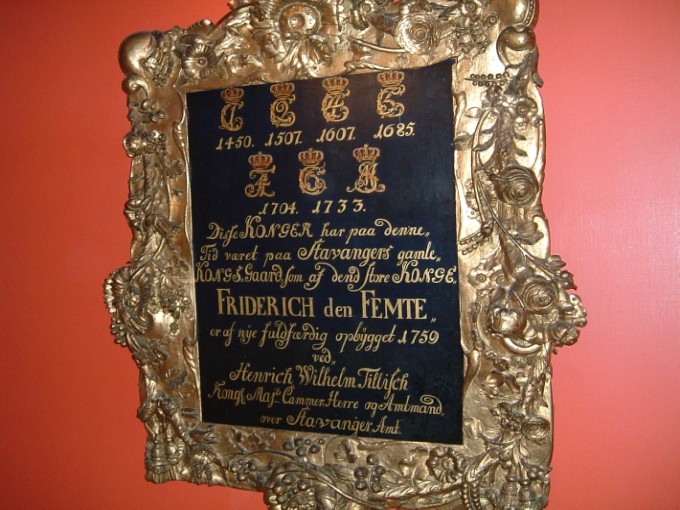 1450. 1507. 1607. 1685.
1704. 1733.
Disse KONGER har paa denne,,
Tid været paa Stavangers gamle,
KONGS,Gaard, som af dend store KONGE,
FRIDERICH den FEMTE,,
er af nye fuldfærdig opbÿgget 1759
ved,,
Henrich Wilhelm Tillisch
Kongl. Majts Cammer Herre og Amtmand
over Stavanger Amt.